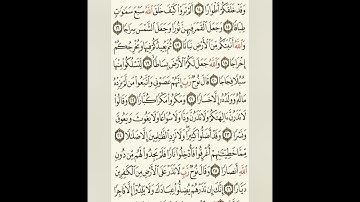 وَقَدْ خَلَقَكُمْ أَطْوَارًا ١٤ أَلَمْ تَرَوْا۟ كَيْفَ خَلَقَ ٱللَّهُ سَبْعَ سَمَٰوَٰتٍ
طِبَاقًا ١٥ وَجَعَلَ ٱلْقَمَرَ فِيهِنَّ نُورًا وَجَعَلَ ٱلشَّمْسَ سِرَاجًا ١٦
وَٱللَّهُ أَنۢبَتَكُم مِّنَ ٱلْأَرْضِ نَبَاتًا ١٧ ثُمَّ يُعِيدُكُمْ فِيهَا وَيُخْرِجُكُمْ
إِخْرَاجًا ١٨ وَٱللَّهُ جَعَلَ لَكُمُ ٱلْأَرْضَ بِسَاطًا ١٩ لِّتَسْلُكُوا۟ مِنْهَا
سُبُلًا فِجَاجًا ٢٠ قَالَ نُوحٌ رَّبِّ إِنَّهُمْ عَصَوْنِى وَٱتَّبَعُوا۟ مَن لَّمْ يَزِدْهُ
مَالُهُۥ وَوَلَدُهُۥٓ إِلَّا خَسَارًا ٢١ وَمَكَرُوا۟ مَكْرًا كُبَّارًا ٢٢ وَقَالُوا۟
لَا تَذَرُنَّ ءَالِهَتَكُمْ وَلَا تَذَرُنَّ وَدًّا وَلَا سُوَاعًا وَلَا يَغُوثَ وَيَعُوقَ
وَنَسْرًا ٢٣ وَقَدْ أَضَلُّوا۟ كَثِيرًا وَلَا تَزِدِ ٱلظَّٰلِمِينَ إِلَّا ضَلَٰلًا ٢٤
مِّمَّا خَطِيٓـَٰٔتِهِمْ أُغْرِقُوا۟ فَأُدْخِلُوا۟ نَارًا فَلَمْ يَجِدُوا۟ لَهُم مِّن دُونِ
ٱللَّهِ أَنصَارًا ٢٥ وَقَالَ نُوحٌ رَّبِّ لَا تَذَرْ عَلَى ٱلْأَرْضِ مِنَ ٱلْكَٰفِرِينَ
دَيَّارًا ٢٦ إِنَّكَ إِن تَذَرْهُمْ يُضِلُّوا۟ عِبَادَكَ وَلَا يَلِدُوٓا۟ إِلَّا فَاجِرًا